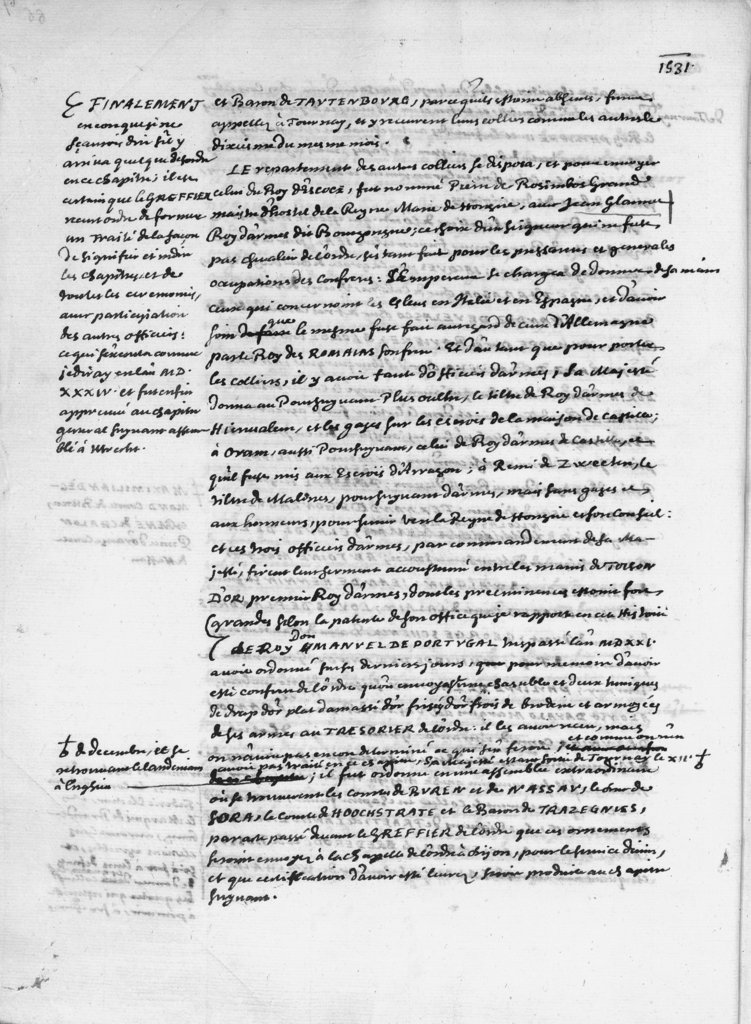 1531.
FINALEMENT
encore qu'en ne
arriva quelque desordre
en ce chapitre; il est
certain que le GREFFIER
receut ordre de former
un Traité de la façon
de signifier et tenir
les chapitres, et de
toutes les ceremonies,
avec participation
des autres officiers:
ce qui s'executa comme
je diray en l'an MD.
XXXIV. et fut enfin
appreuvé au chapitre
general suyvant assem-
blé à Utrecht.
et Baron de TAUTENBOURG, parce qu'ils estoient absens, furent
appellez à Tournay, et y receurent leurs colliers comme les autres le
dixiesme du mesme mois.
LE repartement des autres colliers se disposa, et pour envoyer
celui du Roy d'Escoce, fut nommé Pierre de Rosimbos Grand
maistre d'hostel de la Reyne Marie de Hongrie, avec Jean
Roy d'armes dit Bourgongne; ce choix d'un seigneur qui ne fut
pas chevalier de l'ordre, s'estant fait pour les pressantes et generales
occupations des Confreres: L'Empereur se chargea de donner de sa main
ceux qui concernoient les Esleus en Italie et en Espagne, et d'avoir
soin que le mesme fust fait au regard de ceux d'Allemagne
par le Roy des ROMAINS son frere. Et d'autant que pour porter
les colliers, il y avoit faute d'officiers d'armes; sa Majesté
donna au Poursuyvant Plus oultre, le tiltre de Roy d'armes de
Hierusalem, et les gages sur les estrois de la maison de Castille;
à Oran, aussi Poursuyvant, celui de Roy d'armes de Castille, et
qu'il fust mis aux Escrois d'Arragon; à Remi de
tiltre de Malines, poursuyvant d'armes, mais sans gages et
aux honneurs, pour servir vers la Reyne de Hongrie et son Conseil:
et ces trois officiers d'armes, par commandement de sa Ma-
jesté, firent leur serment accoustumé entre les mains de TOISON
D'OR premier Roy d'armes, dont les preeminences estoient fort
grandes selon la patente de son office que je rapporte en cet Histoire
LE ROY Don EMANUEL DE PORTUGAL trespassé l'an MDXXI.
avoit ordonné sur ses derniers jours, que pour memoire d'avoir
esté confrere de l'ordre qu'on envoyast une chasuble et deux tuniques
de drap d'or plat damassé d'or frisé d'or frois de broderie et armoyés
de ses armes au TRESORIER de l'ordre: il les avoit receu, mais
on n'avoit pas encor determiné ce que s'en feroit; et comme on n'en
avoit pas traité en ce chapitre, Sa Majesté estant sortie de Tournay le XII.e
‡ de decembre, et se
retrouvant le lendemain
à Enghien
il fut ordonné en une assemblée extraordinaire
où se trouverent les Comtes de BUREN et de NASSAU, le duc de
SORA, le Comte de HOOCHSTRATE et le Baron de TRAZEGNIES,
par acte passé devant le GREFFIER de l'ordre que ces ornemens
seroient envoyez à la Chapelle de l'ordre à Dijon, pour le service divin,
et que certification d'avoir esté livrez, seroit produite au chapitre
suyvant.